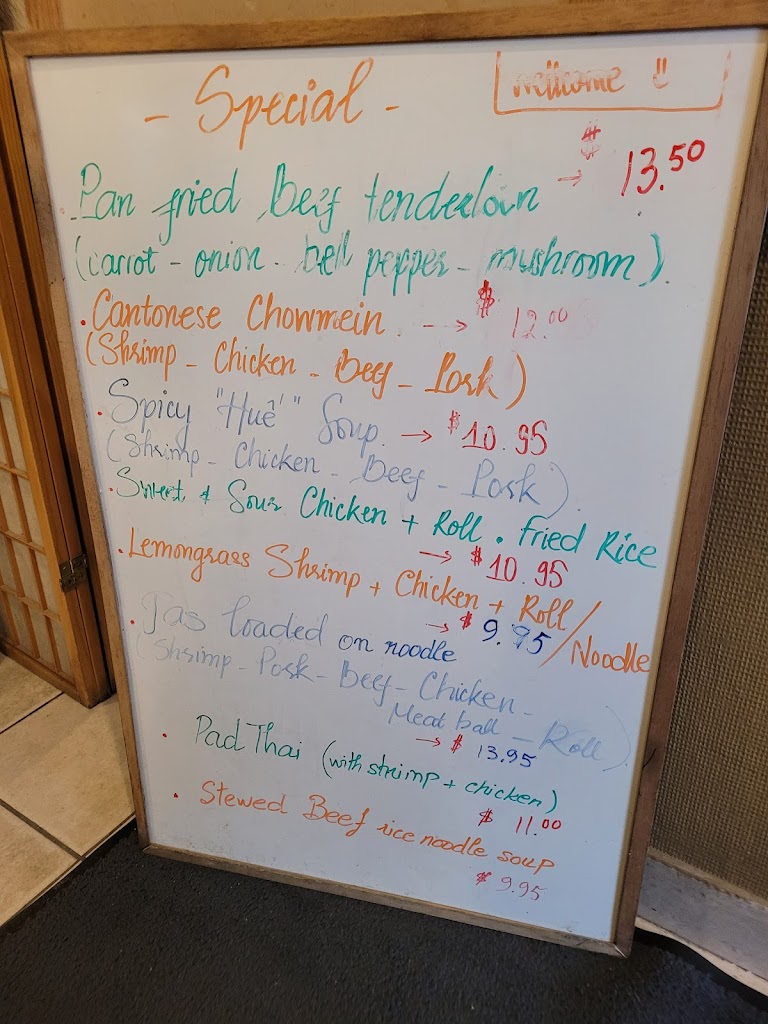 - Special -
Wellcome
$
→ 13.50
. Pan fried Beef tenderloin
(carrot - onion - bell pepper - mushroom).
. Cantonese Chowmein → $ 12.00
(Shrimp - Chicken - Beef - Pork)
. Spicy "Huế" Soup. → $10.95
(Shrimp - Chicken - Beef - Pork).
. Sweet & Sour Chicken + Roll . Fried Rice
→ $10.95
. Lemongrass Shrimp + Chicken + Roll / Noodle
→ $ 9.95
. Tas loaded on noodle
(Shrimp - Pork - Beef - Chicken -
Meat ball - Roll)
→ $ 13.95
. Pad Thai (with shrimp + chicken)
$ 11.00
. Stewed Beef rice noodle soup
$ 9.95